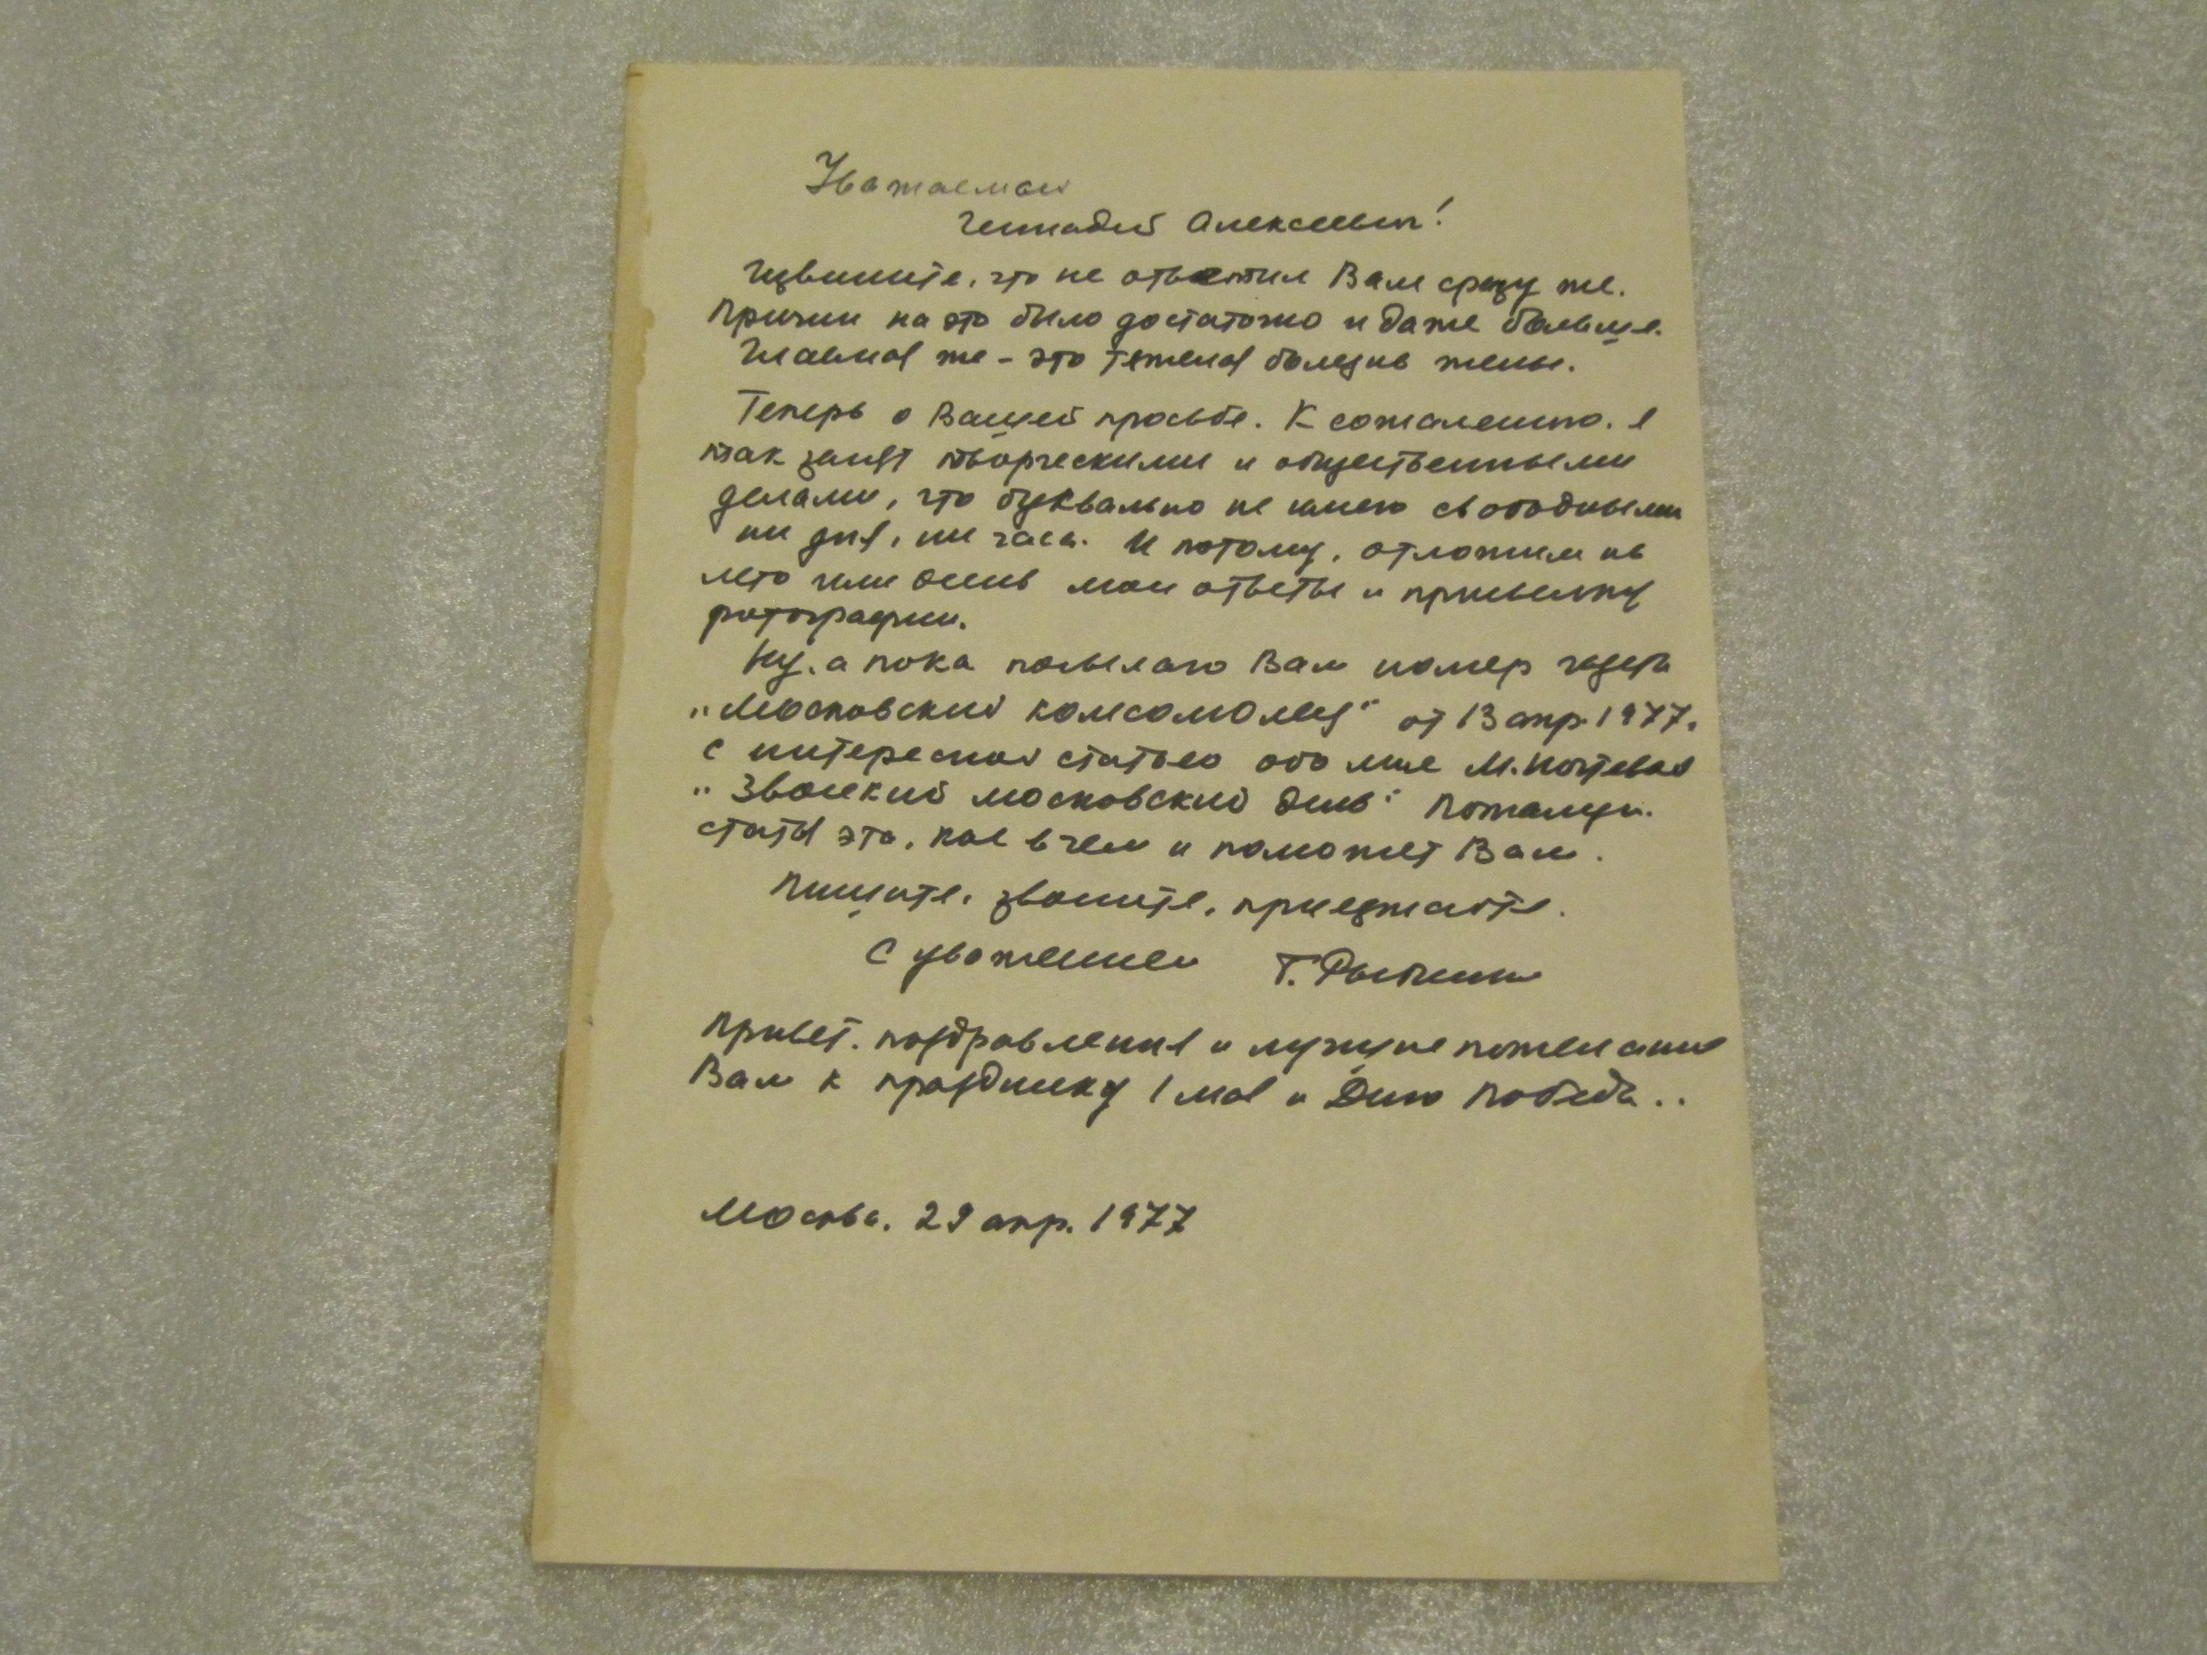 Уважаемый
Геннадий Алексеевич!
Извините, что не ответил Вам сразу же.
Причин на это было достаточно и даже больше.
Главная же – это тяжелая болезнь жены.
Теперь о Вашей просьбе. К сожалению, я
так занят творческими и общественными
делами, что буквально не имею свободными
ни дня, ни часа. И потому, отложим на
лето или осень мои ответы и присылку
фотографии.
Ну, а пока посылаю Вам номер газеты
„Московский комсомолец“ от 13 апр. 1977.
с интересной статьею обо мне М.
„Звонкий московский день“. Пожалуй,
статья эта, кое в чем и поможет Вам.
Пишите, звоните, приезжайте.
С уважением Г. Рыбкин
Привет, поздравления и лучшие пожелания
Вам к празднику 1 мая и Дню Победы..
Москва. 29 апр. 1977